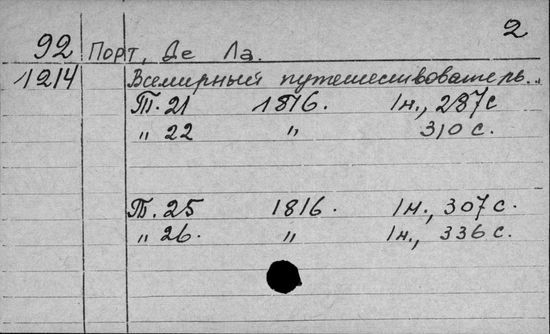 2
92 Порт, Де Ла.
1214 Всемирный путешествователь..
Т. 21 1816. 1н., 287с
" 22 " 310 с.
Т. 25 1816. 1н., 307с.
" 26. " 1н., 336 с.